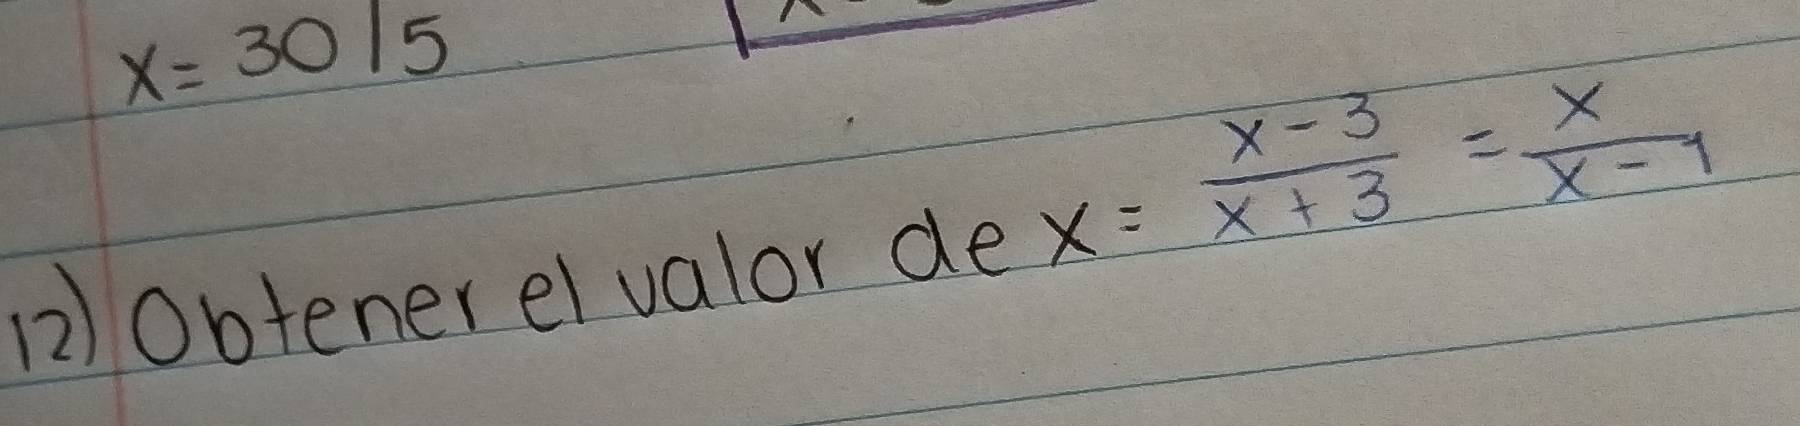 x = 30/5
12) Obtener el valor de x = \frac{x-3}{x+3} = \frac{x}{x-1}